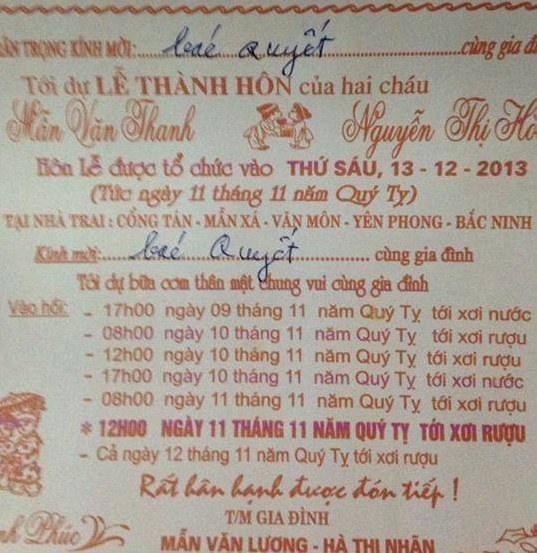 TRỌNG KÍNH MỜI:........ Quyết ........cùng gia
Tới dự LỄ THÀNH HÔN của hai cháu
Mẫn Văn Thanh Nguyễn Thị
Hôn lễ được tổ chức vào THỨ SÁU, 13 - 12 - 2013
(Tức ngày 11 tháng 11 năm Quý Tỵ)
TẠI NHÀ TRAI : CỔNG TÁN - MẪN XÁ - VĂN MÔN - YÊN PHONG - BẮC NINH
Kính mời:........ Quyết ........ cùng gia đình
Tới dự bữa cơm thân mật chung vui cùng gia đình
Vào hồi: - 17h00 ngày 09 tháng 11 năm Quý Tỵ tới xơi nước
- 08h00 ngày 10 tháng 11 năm Quý Tỵ tới xơi rượu
- 12h00 ngày 10 tháng 11 năm Quý Tỵ tới xơi rượu
- 17h00 ngày 10 tháng 11 năm Quý Tỵ tới xơi nước
- 08h00 ngày 11 tháng 11 năm Quý Tỵ tới xơi rượu
* 12H00 NGÀY 11 THÁNG 11 NĂM QUÝ TỴ TỚI XƠI RƯỢU
- Cả ngày 12 tháng 11 năm Quý Tỵ tới xơi rượu
Rất hân hạnh được đón tiếp !
T/M GIA ĐÌNH
Phúc
MẪN VĂN LƯƠNG - HÀ THỊ NHÃN